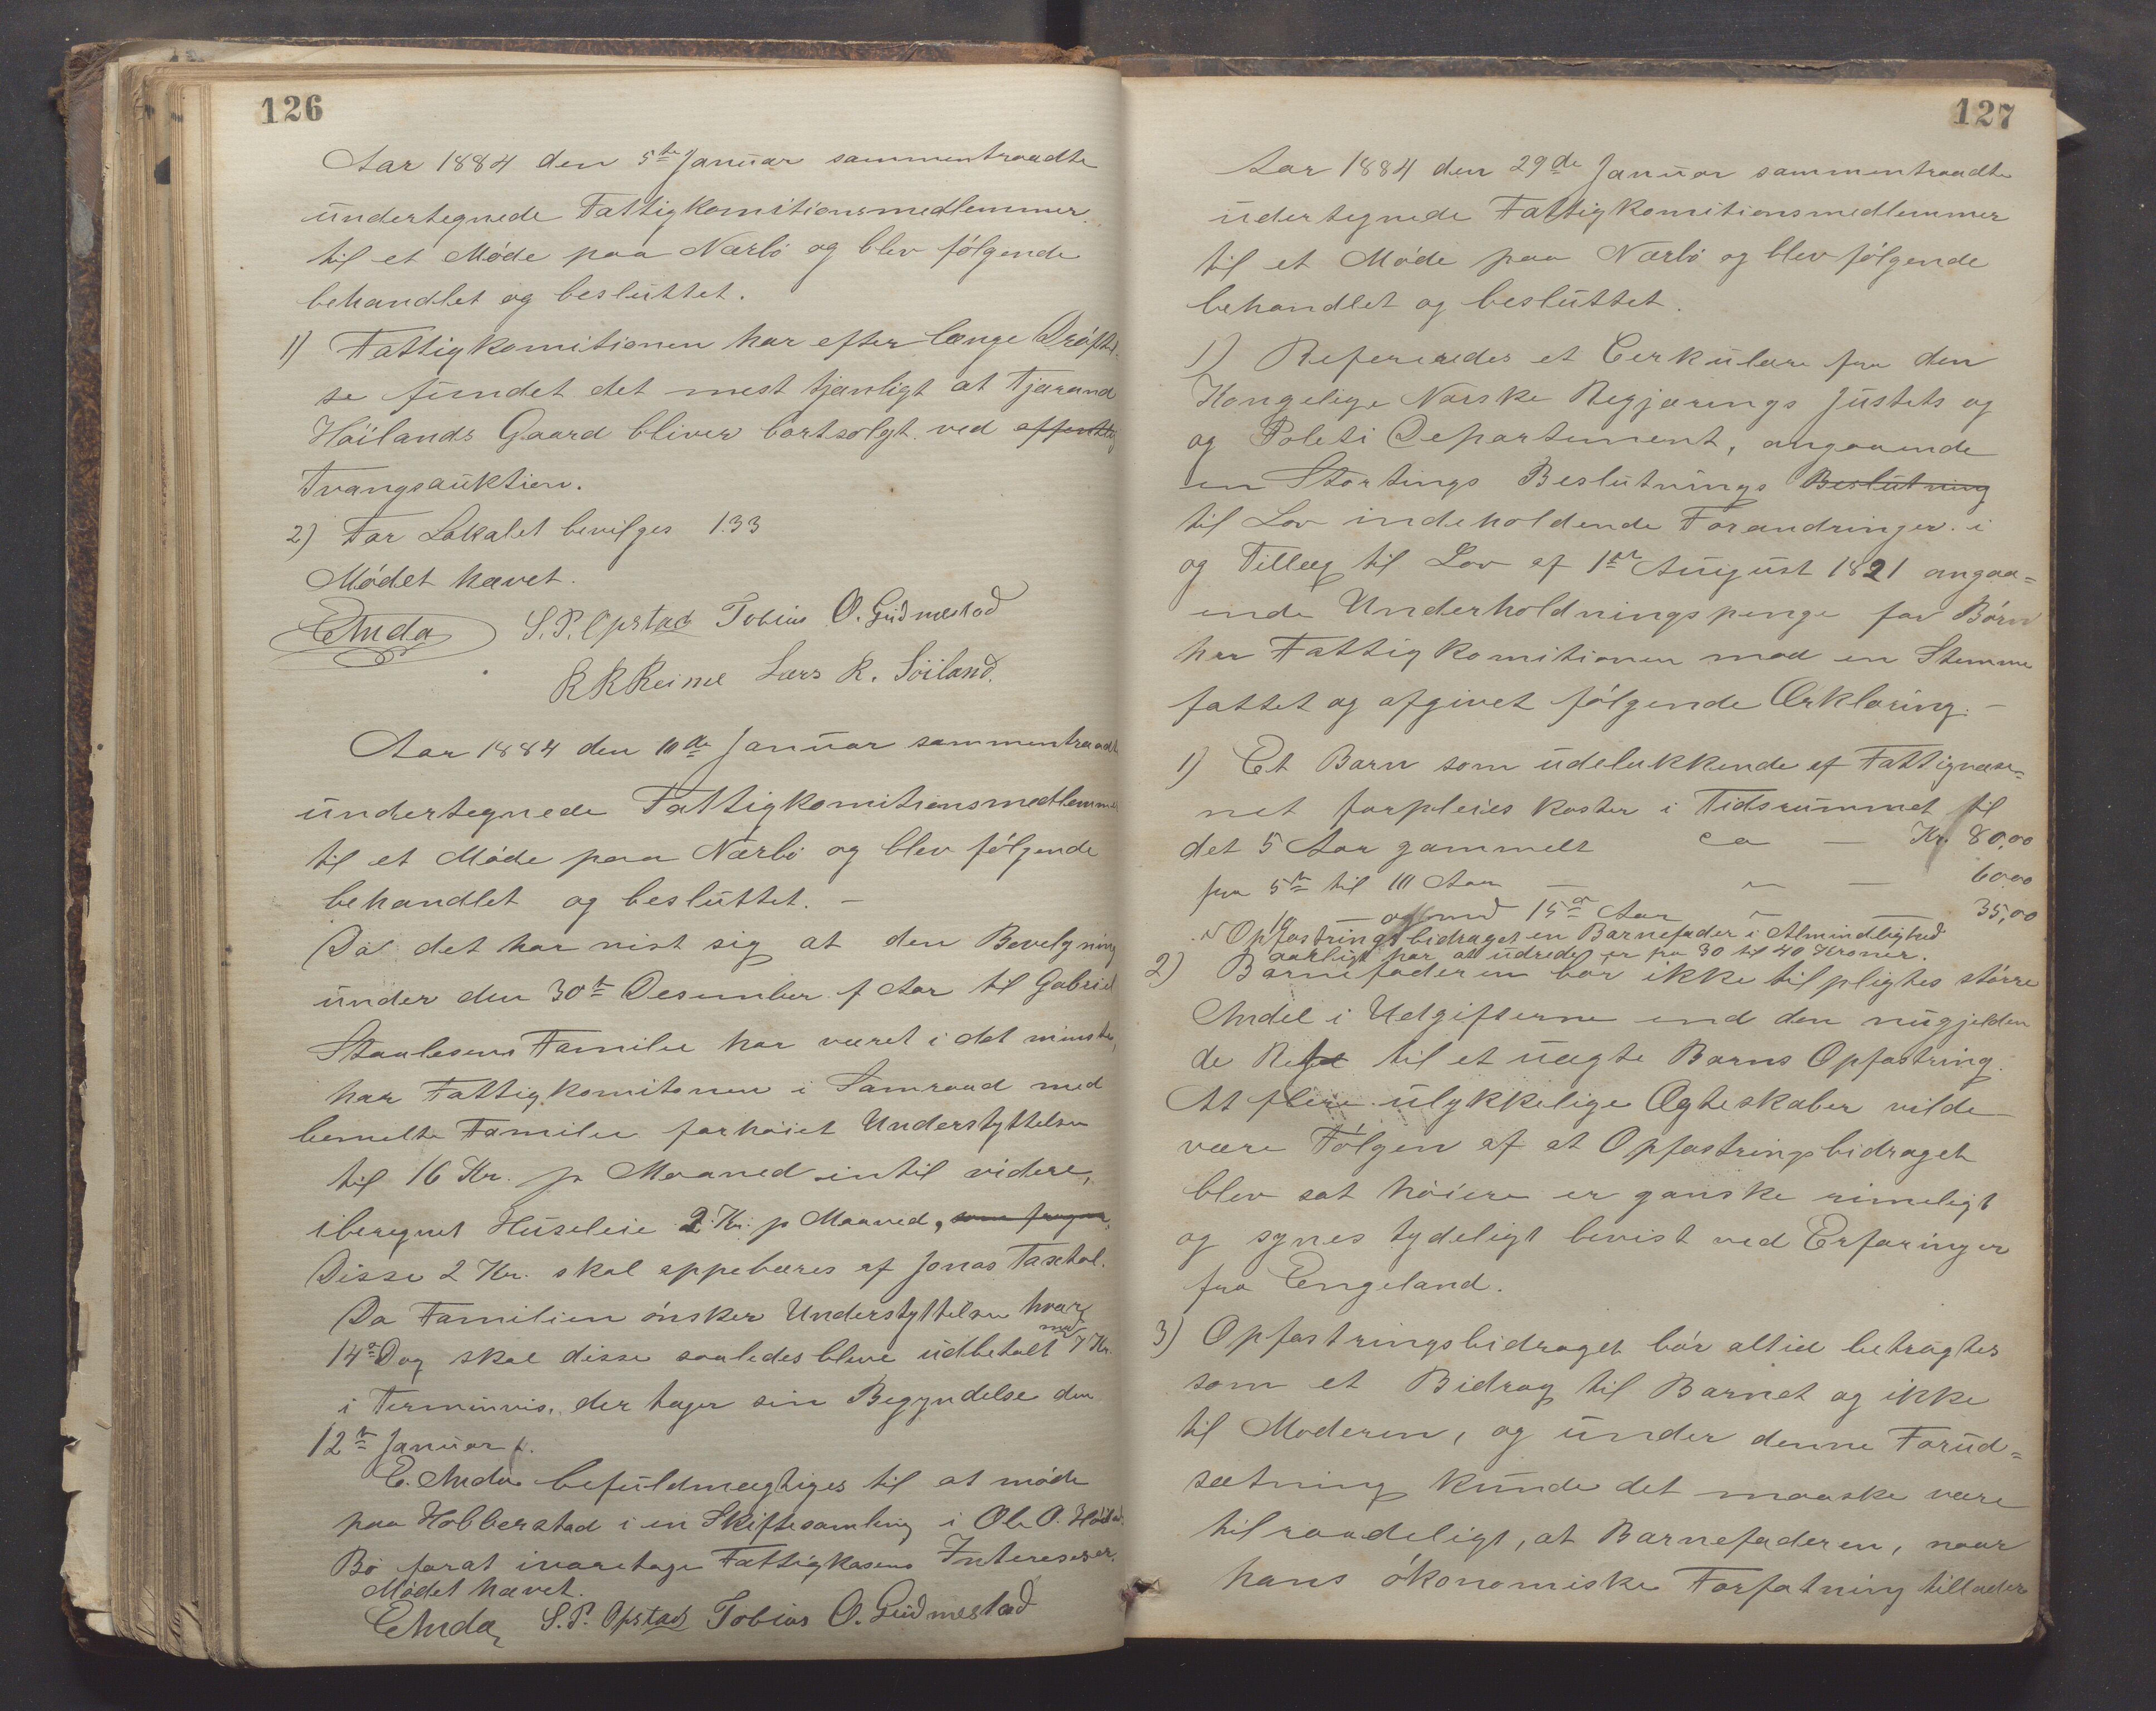 126
Aar 1884 den 5te Januar sammentraadte
undertegnede Fattigkomitionsmedlemmer
til et Møde paa Nærbø og blev følgende
behandlet og besluttet.
1) Fattigkomitionen har efter længe Drøftel-
se fundet det mest tjænligt at Tjærand
Höilands Gaard bliver bortsolgt ved offentlig
Tvangsauktion.
2) For Lokalet bevilges 1.33
Mødet hævet.
E Anda S. P. Opstad Tobias O. Gudmestad
R K Reime Lars R. Söiland.
Aar 1884 den 10de Januar sammentraadte
undertegnede Fattigkomitionsmedlemmer
til et Møde paa Nærbø og blev følgende
behandlet og besluttet. —
Da det har vist sig at den Bevilgning
under den 30te Desember f Aar til Gabriel
Staalesens Familie har været i det minste,
har Fattigkomitonen i Samraad med
bemelte Familie forhøiet Understyttelsen
til 16 Kr. p Maaned intil videre,
iberegnet Huseleie 2 Kr. p Maaned, som
Disse 2 Kr. skal oppebæres af Jonas Taxtal.
Da Familien ønsker Understyttelsen hver
14de Dag skal disse saaledes blive udbetalt med 7 Kr.
i Terminvis, der tager sin Begyndelse den
12te Januar
E. Anda befuldmægtiges til at møde
paa Hobberstad i en Skiftesamling i Ole O.
Bø forat ivaretage Fattigkasens Intereser.
Mødet hævet.
E Anda S. P. Opstad Tobias O. Gudmestad
127
Aar 1884 den 29de Januar sammentraadte
udertegnede Fattigkomitionsmedlemmer
til et Møde paa Nærbø og blev følgende
behandlet og besluttet.
1) Refereredes et Cerkulære fra den
Kongelige Norske Regjærings Justets og
og Poleti Departement, angaaende
en Stortings Beslutnings Beslutning
til Lov indeholdende Forandringer i
og Tillæg til Lov af 1ste August 1821 angaa=
ende Underholdningspenge for Børn
har Fattigkomitionen mod en Stemme
fattet og afgivet følgende Erklæring. —
1) Et Barn som udelukkende af Fattigvæse-
net forpleies koster i Tidsrummet til
det 5 Aar gammelt ca — Kr. 80,00
fra 5te til 10 Aar — " — 60,00
" 10 — og med 15de Aar " — 35,00
Opfostringsbidraget en Barnefader i Almindelighed
aarligt har at udrede er fra 30 til 40 Kroner.
2) Barnefaderen bør ikke tilpligtes større
Andel i Udgifterne end den nugjelden
de Ret til et uægte Barns Opfostring.
At flere ulykkelige Ægteskaber vilde
være Følgen af at Opfostringsbidraget
blev sat høiere er ganske rimeligt
og synes tydeligt bevist ved Erfaringer
fra Engeland.
3) Opfostringsbidraget bør altid betragtes
som et Bidrag til Barnet og ikke
til Moderen, og under denne Forud=
sætning kunde det maaske være
tilraadeligt, at Barnefaderen, naar
hans økonomiske Forfatning tillader